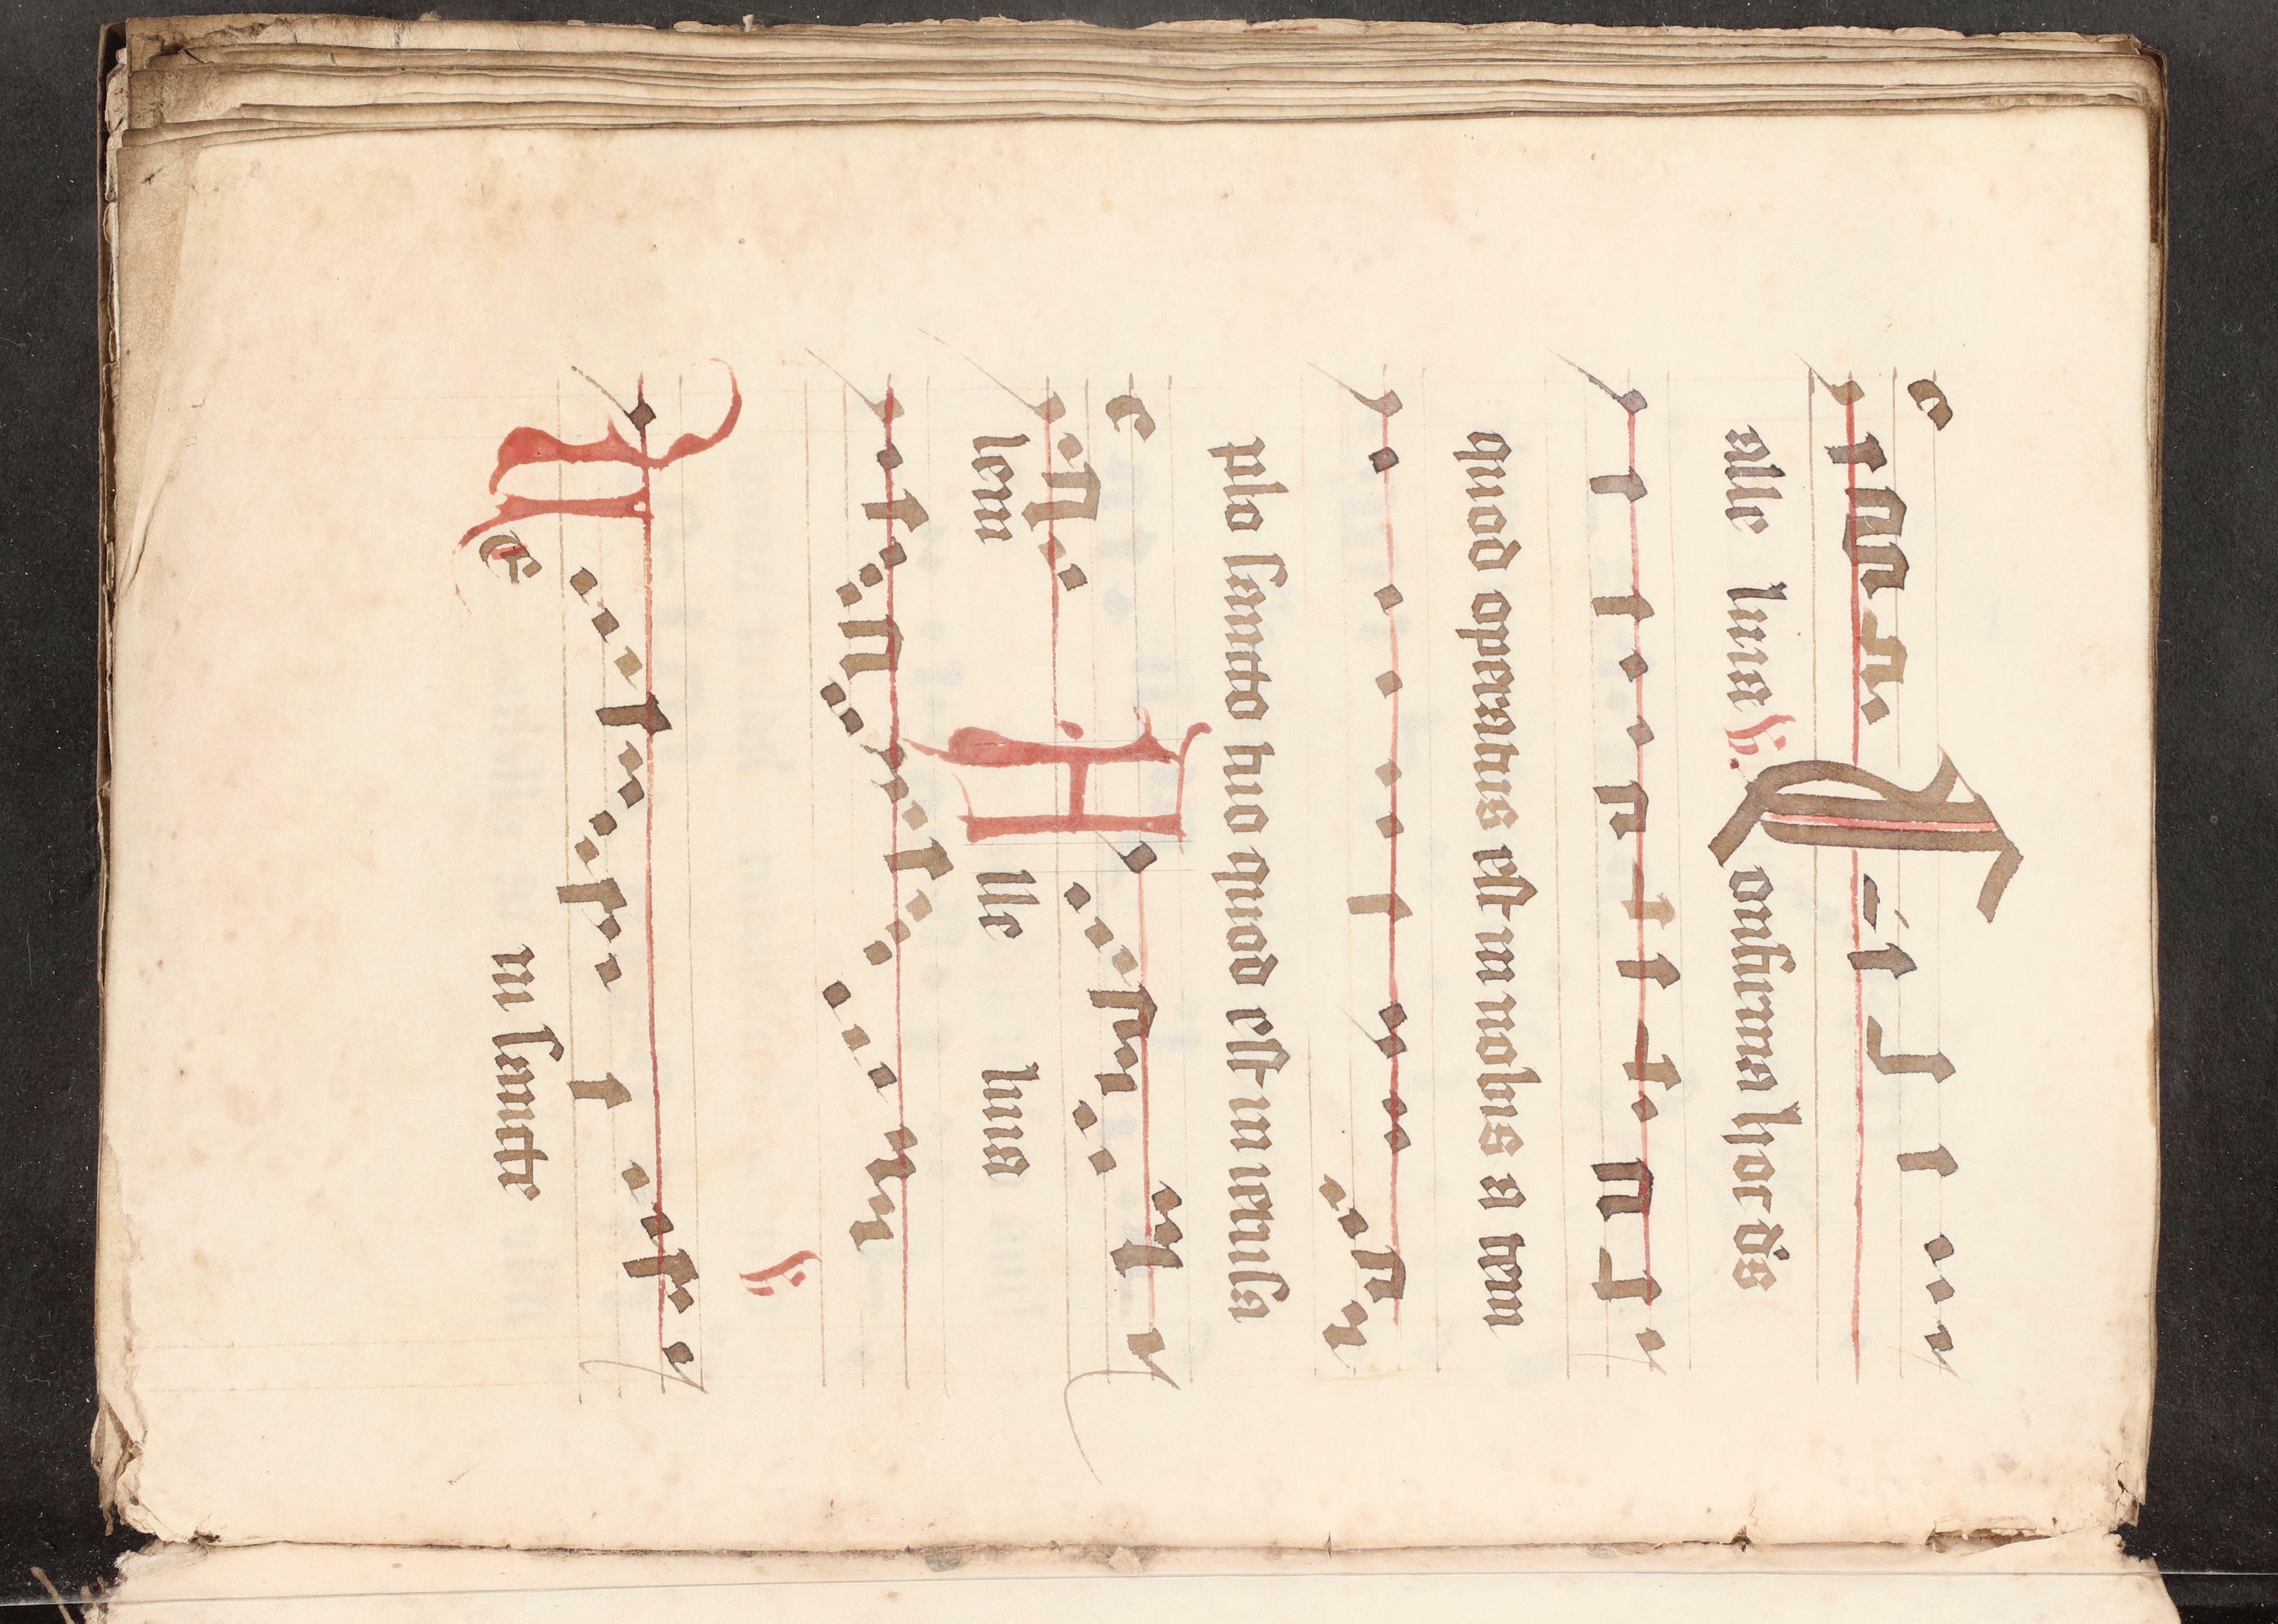 alle luia ℣. Confirma hoc ds̄
quod operatus est in nobis a tem
plo sancto tuo quod est in ierusa
lem Alle luia
℣.
Ve ni sancte